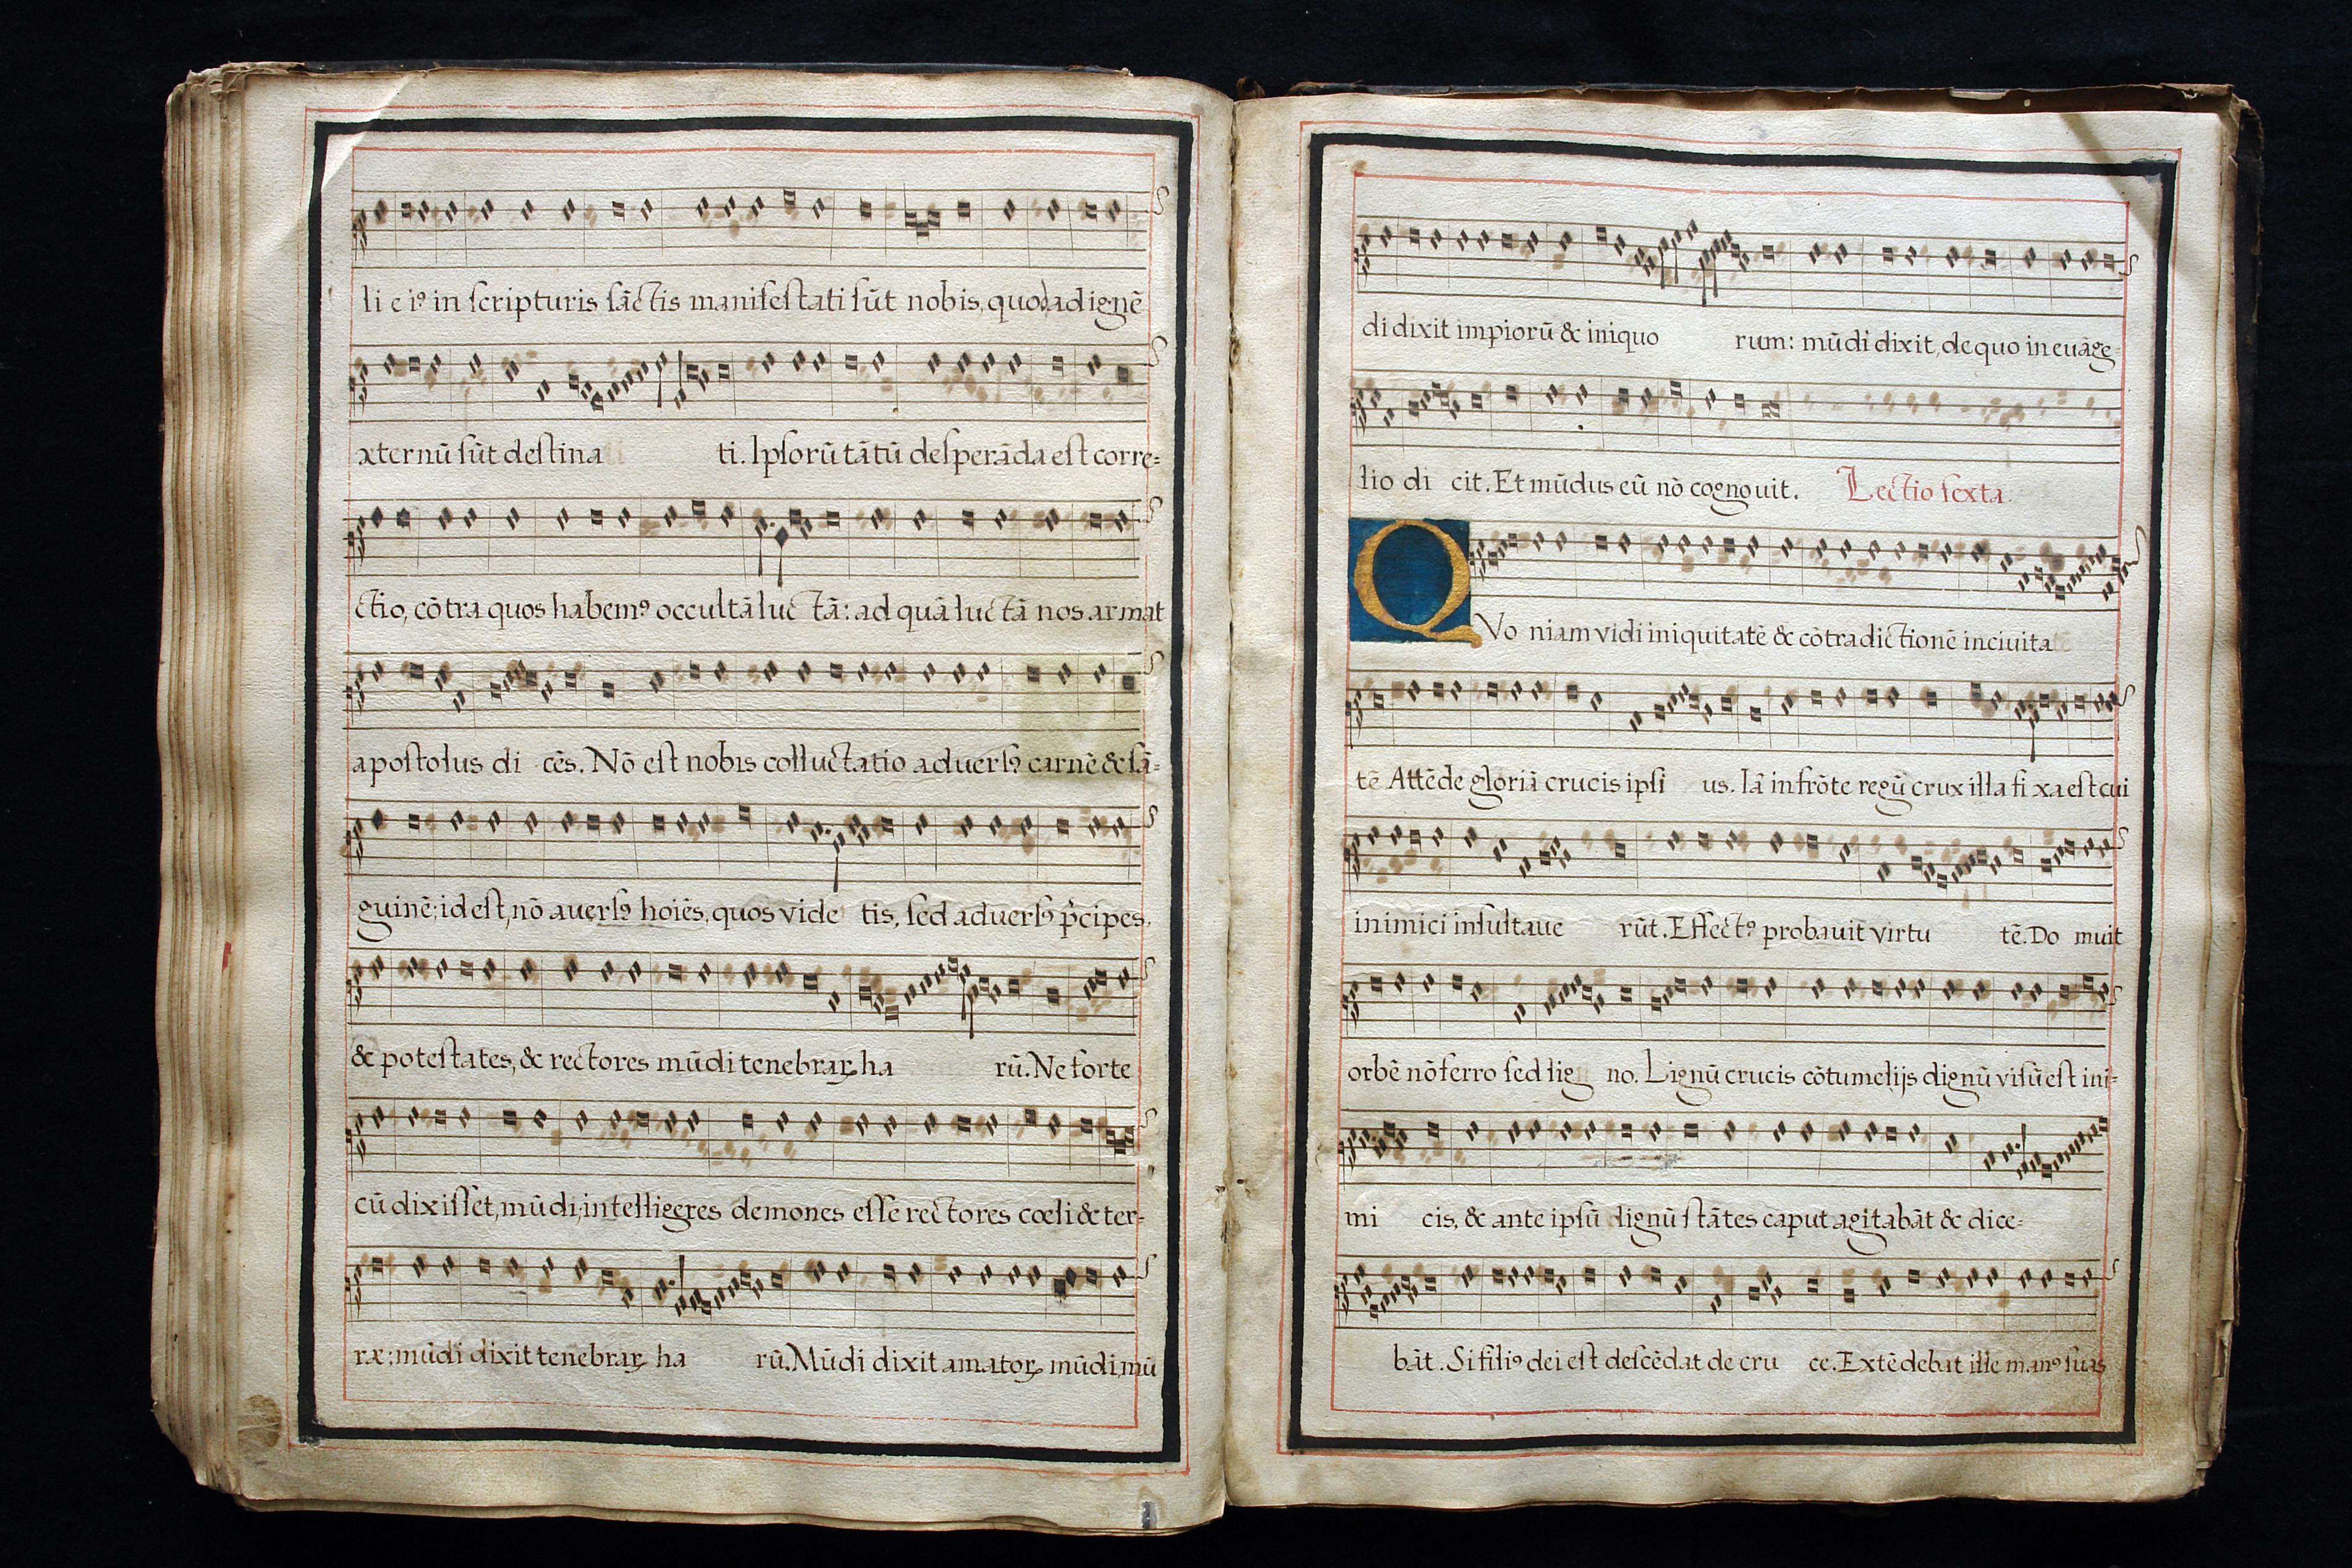 li eiꝰ in scripturis sāctis manifestati sūt nobis, quod ad ignē
æternū sūt destina ti. Ipsorū tātū desperāda est corre-
ctio, cōtra quos habemꝰ occultā luc tā: ad quā luctā nos armat
apostolus di cēs. Nō est nobis colluctatio aduersꝰ carnē & sā-
guinē; id est, nō auersꝰ hoiēs, quos vide tis, sed aduersꝰ p̄cipes,
& potestates, & rectores mūdi tenebraꝝ ha rū. Ne forte
cū dixisset, mūdi, intelligeres demones esse rectores cœli & ter-
ræ; mūdi dixit tenebraꝝ ha rū. Mūdi dixit amatoꝝ mūdi, mū
di dixit impiorū & iniquo rum: mūdi dixit, de quo in euāge-
lio di cit. Et mūdus eū nō cognouit. Lectio sexta.
QVo niam vidi iniquitatē & cōtradictionē in ciuita
tē Attēde gloriā crucis ipsi us. Iā in frōte regū crux illa fi xa est cui
inimici insultaue rūt. Effectꝰ probauit virtu tē. Do muit
orbē nō ferro sed lig no. Lignū crucis cōtumelijs dignū visū est ini-
mi cis, & ante ipsū lignū stātes caput agitabāt & dice-
bāt. Si filiꝰ dei est descēdat de cru ce. Extēdebat ille manꝰ suas